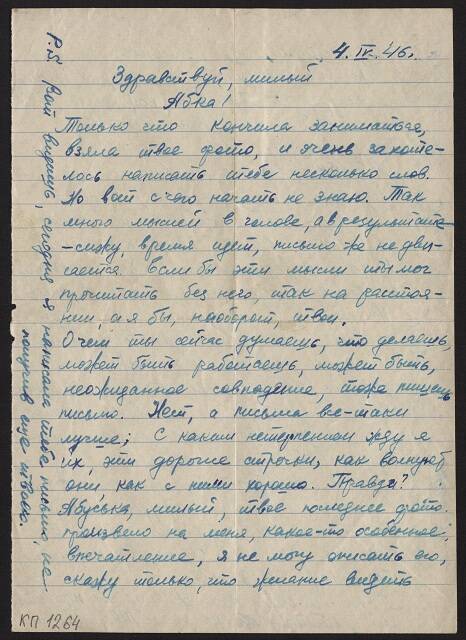 4. IV. 46г.
Здравствуй, милый
Абка!
Только что кончила заниматься,
взяла твое фото, и очень захоте-
лось написать тебе несколько слов.
Но вот с чего начать не знаю. Так
много мыслей в голове, а в результате
-сижу, время идет, письмо же не дви-
гается. Если бы эти мысли ты мог
прочитать без него, так на расстоя-
нии, а я бы, наоборот, твои.
О чем ты сейчас думаешь, что делаешь,
может быть работаешь, может быть,
неожиданное совпадение, тоже пишешь
письмо. Нет, а письма все-таки
лучше; С каким нетерпением жду я
их, эти дорогие строчки, как волнуют
они, как с ними хорошо. Правда?
Абуська, милый, твое последнее фото
произвело на меня, какое-то особенное,
впечатление, я не могу описать его,
скажу только, что желание видеть
P.S. Вот видишь, сегодня я написала тебе письмо, не
получив еще твоего.
КП 1264